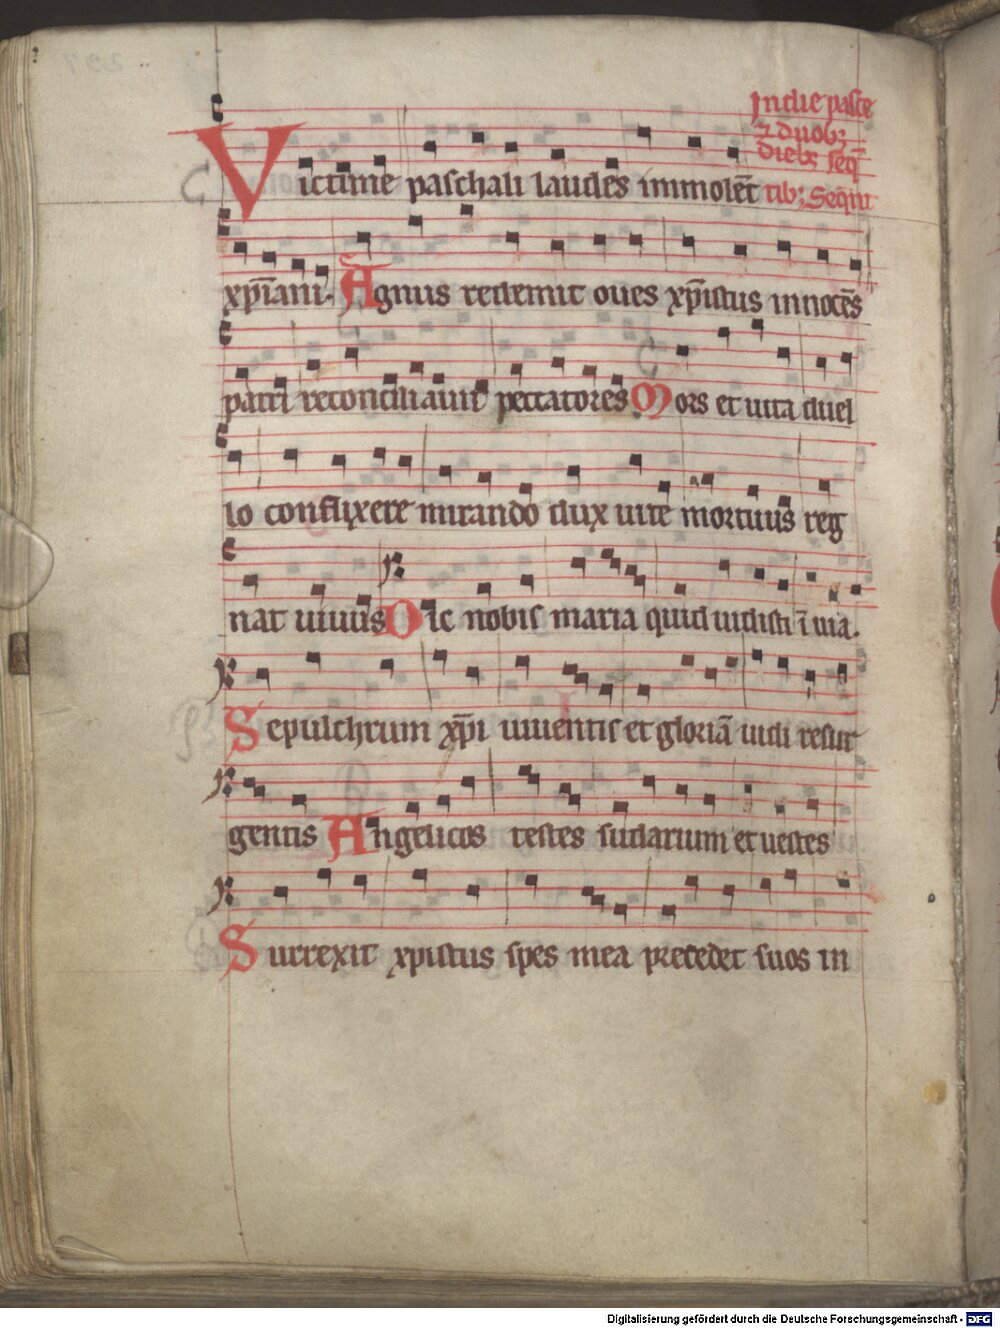 In die pasce
⁊ duobꝫ
diebꝫ seq̄
tibꝫ Sequt
Victime paschali laudes immolēt
xp̄iani. Agnus redemit oues xp̄istus innocēs
patri reconciliauit peccatores Mors et uita duel
lo conflixere mirando dux uite mortuus reg
nat uiuus Dic nobis maria quid uidisti ī uia.
Sepulchrum xp̄i uiuentis et gloriā uidi resur
gentis Angelicos testes sudarium et uestes
Surrexit xpistus spes mea precedet suos in
Digitalisierung gefördert durch die Deutsche Forschungsgemeinschaft - DFG